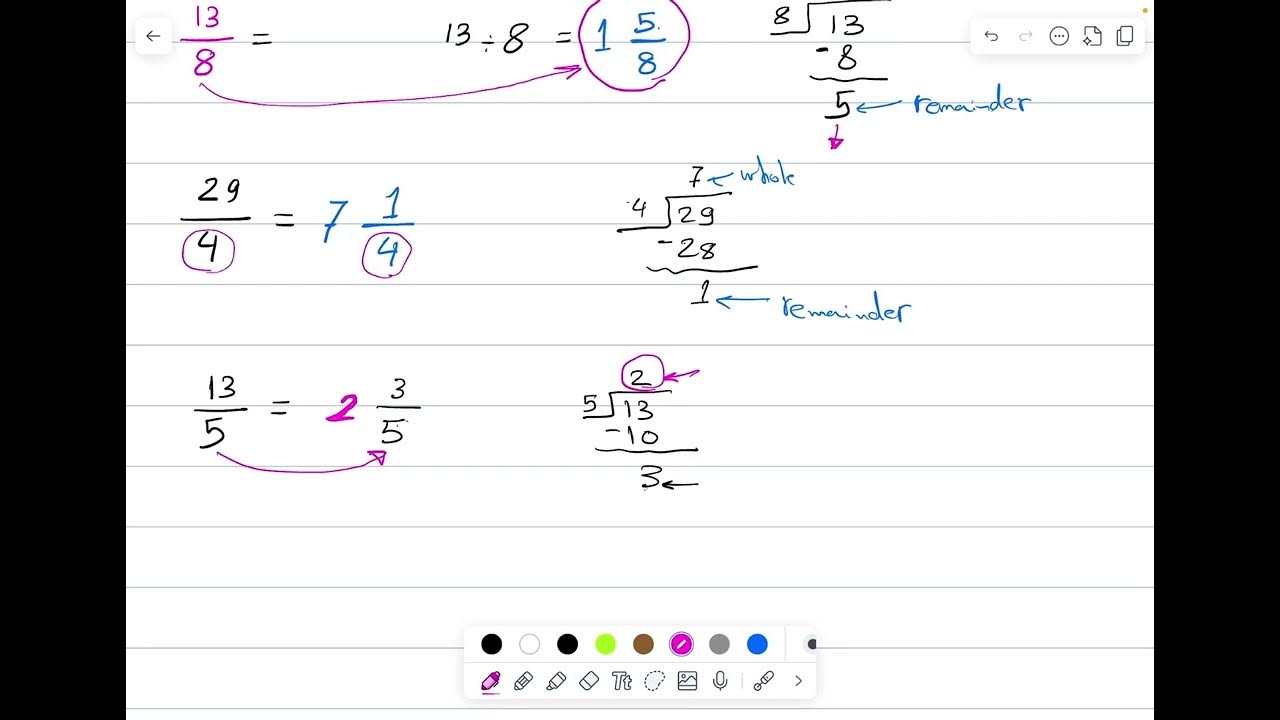 13/8 = 13 ÷ 8 = 1 5/8
8 13
-8
5 ← remainder
29/4 = 7 1/4
7 ← whole
4 29
-28
1 ← remainder
13/5 = 2 3/5
2
5 13
-10
3 ←
Tt